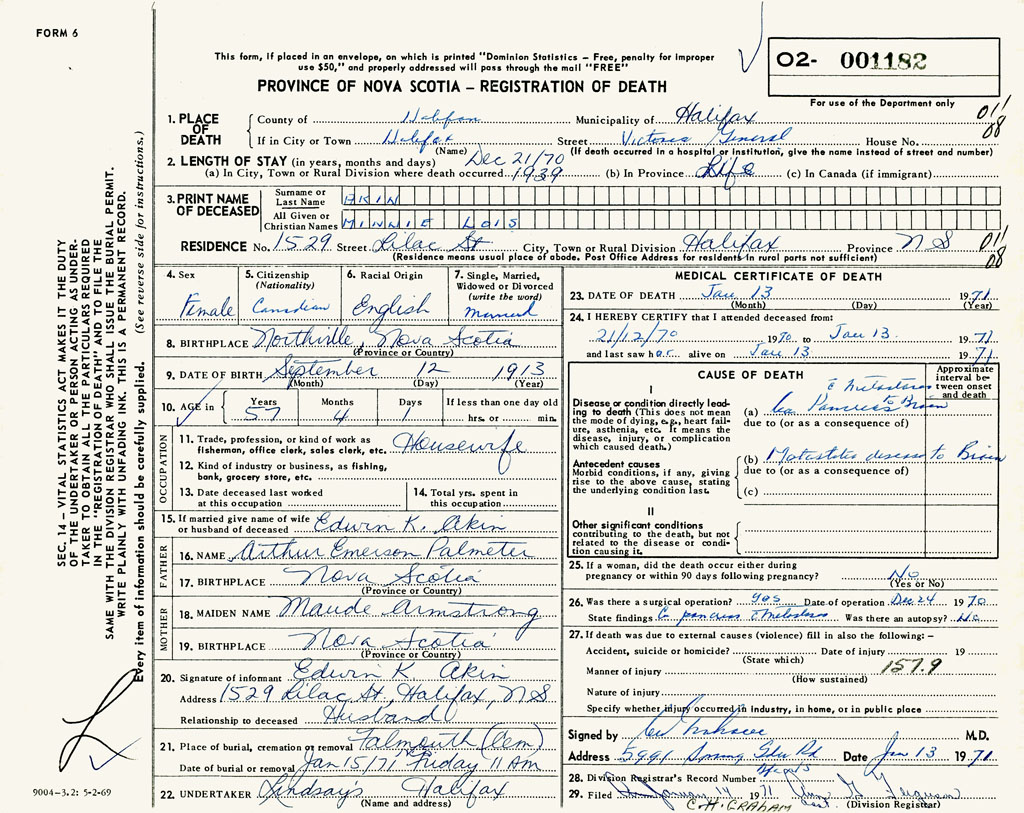 FORM 6
This form, if placed in an envelope, on which is printed "Dominion Statistics – Free, penalty for improper
use $50," and properly addressed will pass through the mail "FREE"
O2- 001182
PROVINCE OF NOVA SCOTIA – REGISTRATION OF DEATH
For use of the Department only
1. PLACE OF DEATH
County of Halifax Municipality of Halifax 011
If in City or Town Halifax Street Victoria General House No. 08
(Name) (If death occurred in a hospital or institution, give the name instead of street and number)
2. LENGTH OF STAY (in years, months and days) Dec 21/70
(a) In City, Town or Rural Division where death occurred 1939 (b) In Province Life (c) In Canada (if immigrant)
3. PRINT NAME OF DECEASED
Surname or Last Name AKIN
All Given or Christian Names MINNIE LOIS
RESIDENCE No. 1529 Street Lilac St City, Town or Rural Division Halifax Province N S 011
(Residence means usual place of abode. Post Office Address for residents in rural parts not sufficient) 08
4. Sex
Female
5. Citizenship
(Nationality)
Canadian
6. Racial Origin
English
7. Single, Married,
Widowed or Divorced
(write the word)
Married
8. BIRTHPLACE Northville, Nova Scotia
(Province or Country)
9. DATE OF BIRTH September 12 1913
(Month) (Day) (Year)
10. AGE in Years 57 Months 4 Days 1 If less than one day old
hrs. or min.
OCCUPATION
11. Trade, profession, or kind of work as
fisherman, office clerk, sales clerk, etc. Housewife
12. Kind of industry or business, as fishing,
bank, grocery store, etc.
13. Date deceased last worked
at this occupation
14. Total yrs. spent in
this occupation
15. If married give name of wife
or husband of deceased Edwin K. Akin
FATHER
16. NAME Arthur Emerson Palmeter
17. BIRTHPLACE Nova Scotia
(Province or Country)
MOTHER
18. MAIDEN NAME Maude Armstrong
19. BIRTHPLACE Nova Scotia
(Province or Country)
20. Signature of informant Edwin K Akin
Address 1529 Lilac St, Halifax, N S
Relationship to deceased Husband
21. Place of burial, cremation or removal Falmouth (Cem)
Date of burial or removal Jan 15/71 Friday 11 Am
22. UNDERTAKER Lindsay's Halifax
(Name and address)
MEDICAL CERTIFICATE OF DEATH
23. DATE OF DEATH Jan 13 1971
(Month) (Day) (Year)
24. I HEREBY CERTIFY that I attended deceased from:
21/12/70 1970 to Jan 13 1971
and last saw her alive on Jan 13 1971
CAUSE OF DEATH
Approximate
interval be-
tween onset
and death
I
Disease or condition directly lead-
ing to death (This does not mean
the mode of dying, e.g., heart fail-
ure, asthenia, etc. It means the
disease, injury, or complication
which caused death.)
c̄ metastases
(a) Ca Pancreas to Brain
due to (or as a consequence of)
Antecedent causes
Morbid conditions, if any, giving
rise to the above cause, stating
the underlying condition last.
(b) disease to Brain
due to (or as a consequence of)
(c)
II
Other significant conditions
contributing to the death, but not
related to the disease or condi-
tion causing it.
25. If a woman, did the death occur either during
pregnancy or within 90 days following pregnancy? No
(Yes or No)
26. Was there a surgical operation? yes Date of operation Dec 24 1970
State findings pancreas Was there an autopsy? No
27. If death was due to external causes (violence) fill in also the following: –
Accident, suicide or homicide? Date of injury 19
(State which)
Manner of injury 157.9
(How sustained)
Nature of injury
Specify whether injury occurred in industry, in home, or in public place
Signed by M.D.
Address 5991 Spring Gdn Rd Date Jan 13 1971
28. Division Registrar's Record Number
29. Filed January 14 1971 Ferguson
C.H. GRAHAM (Division Registrar)
SEC. 14 – VITAL STATISTICS ACT MAKES IT THE DUTY
OF THE UNDERTAKER OR PERSON ACTING AS UNDER-
TAKER TO OBTAIN ALL THE PARTICULARS REQUIRED
IN THE "REGISTRATION OF DEATH" AND TO FILE THE
SAME WITH THE DIVISION REGISTRAR WHO SHALL ISSUE THE BURIAL PERMIT.
WRITE PLAINLY WITH UNFADING INK. THIS IS A PERMANENT RECORD.
Every item of information should be carefully supplied. (See reverse side for instructions.)
9004-3.2: 5-2-69